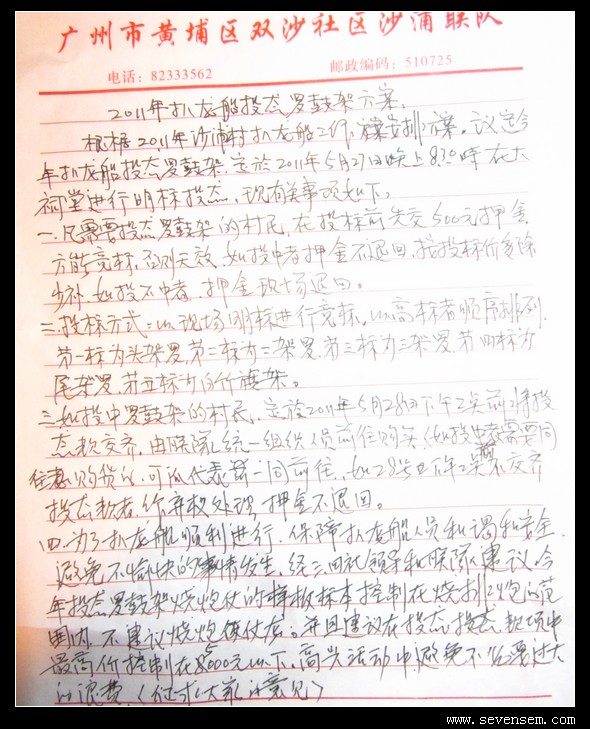 广州市黄埔区双沙社区沙涌联队
电话：82333562 邮政编码：510725
2011年扒龙船投态罗鼓架方案、
根据2011年沙涌村扒龙船工作 方案。议定今
年扒龙船投态罗鼓架、定於2011年5月27日晚上8:30时在大
祠堂进行明标投态、现有关事项如下：
一、凡需要投态罗鼓架的村民、在投标前先交500元押金
方能竞标、否则无效、如投中者押金不退回、按投标价多除
少补、如投不中者、押金现场退回。
二、投标方式：以现场明标进行竞标、以高标者顺序排列、
第一标为头架罗、第二标为二架罗、第三标为三架罗、第四标为
尾架罗、第五标为
三、如投中罗鼓架的村民、定於2011年5月28日下午2点前将投
态款交齐、由联队统一组织人员前往购买（如投中者需要同
往 购货的、可派代表 一同前往、如28号下午2点 不交齐
投态款者、作弃权处理、押金不退回。
四、为了扒龙船顺利进行、保障扒龙船人员和谐和安全、
避免不愉快的事情发生、经三回社领导和联队建议、今
年投态罗鼓架烧炮仗的 标本控制在烧排 包的范
围内、不建议烧炮 。并且建议在投态 款项中
最高价控制在 000元以下、高兴活动中避免不必要过大
的浪费、（征求大家的意见）
www.sevensem.com